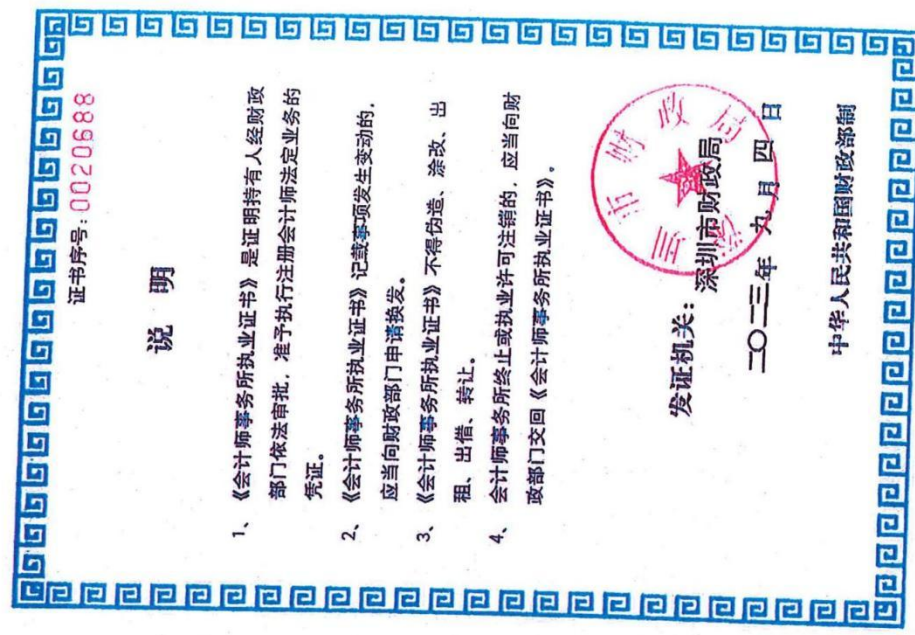 证书序号：0020688
说 明
1、《会计师事务所执业证书》是证明持有人经财政
部门依法审批，准予执行注册会计师法定业务的
凭证。
2、《会计师事务所执业证书》记载事项发生变动的，
应当向财政部门申请换发。
3、《会计师事务所执业证书》不得伪造、涂改、出
租、出借、转让。
4、会计师事务所终止或执业许可注销的，应当向财
政部门交回《会计师事务所执业证书》。
发证机关：深圳市财政局
二〇二三年 九 月 四 日
中华人民共和国财政部制
深圳市财政局